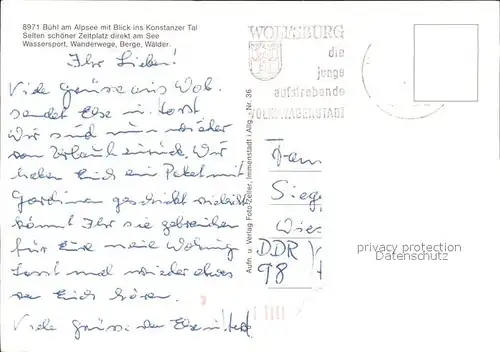 8971 Bühl am Alpsee mit Blick ins Konstanzer Tal
Selten schöner Zeltplatz direkt am See
Wassersport, Wanderwege, Berge, Wälder.
WOLFSBURG
die
junge
aufstrebende
VOLKSWAGENSTADT
Ihr Lieben!
Viele Grüsse aus Wob.
sendet Else u. Horst
Wir sind nun wieder
vom Urlaub zurück. Wir
haben Euch ein Paket mit
Gardinen geschickt vielleicht
könnt Ihr sie gebrauchen
für Eure neue Wohnung
Lasst mal wieder etwas
von Euch hören.
Viele Grüsse von Else u. Horst
Aufn. u. Verlag Foto-Zeller, Immenstadt i. Allg. - Nr. 36
Fam
Sieg
DDR
98
privacy protection
Datenschutz